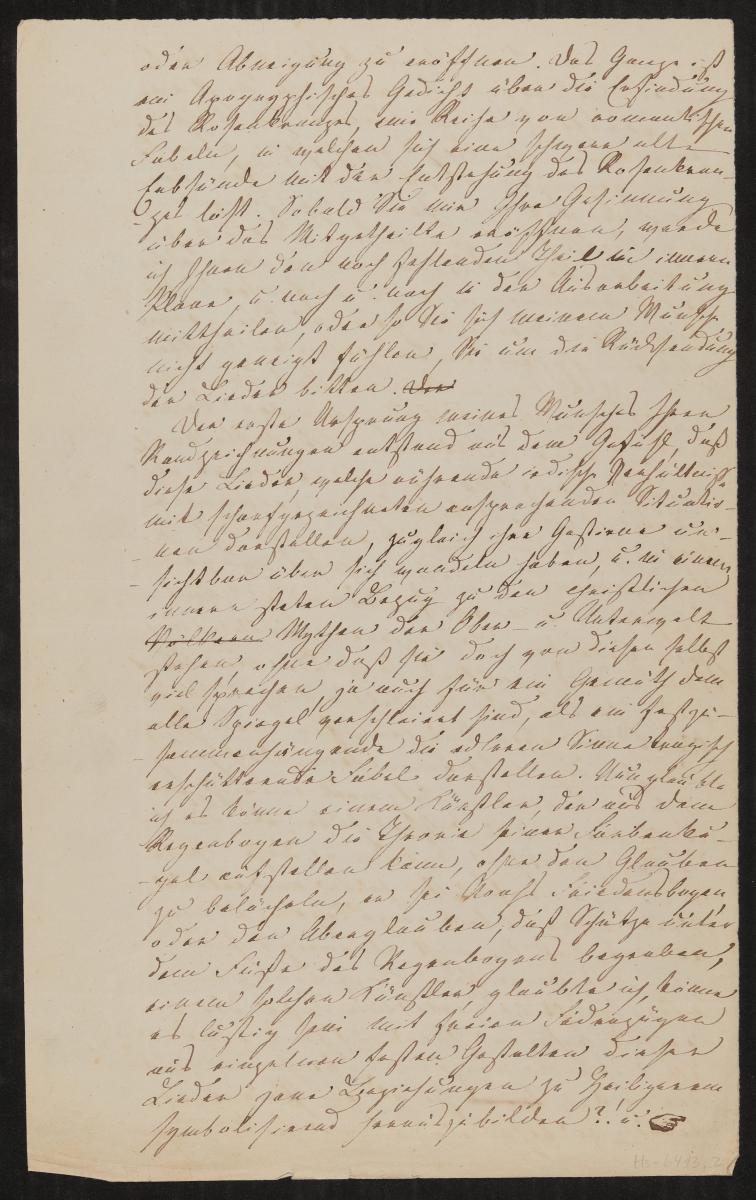 oder Abneigung zu eröffnen. Das Ganze ist
ein Apogryphisches Gedicht über die Erfindung
des Rosenkranzes, eine Reihe von romantischen
Fabeln, in welchen sich eine schwere alte
Erbsünde mit der Entstehung des Rosenkran-
zes löst. Sobald Sie mir Ihre Gesinnung
über das Mitgetheilte eröffnen, werde
ich Ihnen den noch fehlenden Theil im innern
Plane, u. nach u. nach in der Ausarbeitung
mittheilen, oder so Sie sich meinem Wunsch
nicht geneigt fühlen, Sie um die Rücksendung
der Lieder bitten. Der
Der erste Ursprung meines Wunsches Ihrer
Randzeichnungen entstand aus dem Gefühl, daß
diese Lieder, welche rührende irdische Verhältnisse
mit scharfgezeichneten ansprechenden Situatio-
nen darstellen, zugleich ihre Gestirne un-
sichtbar über sich wandeln haben, u. in einem
innern steten Bezug zu den christlichen
Völkern Mythen der Ober- u. Unterwelt
stehen, ohne daß sie doch von diesen selbst
viel sprechen, ja auch für ein Gemüth dem
alle Spiegel verschleiert sind, als ein festzu-
sammenhängende die edleren Sinne tragisch
erschütternde Fabel darstellen. Nun glaubte
ich es könne einem Künstler, der aus dem
Regenbogen die Theorie seiner Farbenku-
gel aufstellen kann, ohne den Glauben
zu belächeln, er sei Noahs Friedensbogen,
oder den Aberglauben, daß Schätze unter
dem Fuße des Regenbogens begraben,
einem solchen Künstler, glaubte ich, könne
es lustig sein mit freien Federzügen
aus einzelnen festen Gestalten dieser
Lieder jene Beziehungen zu Heiligerem
symbolisirend herauszubilden?! u.
Hs-6413,2